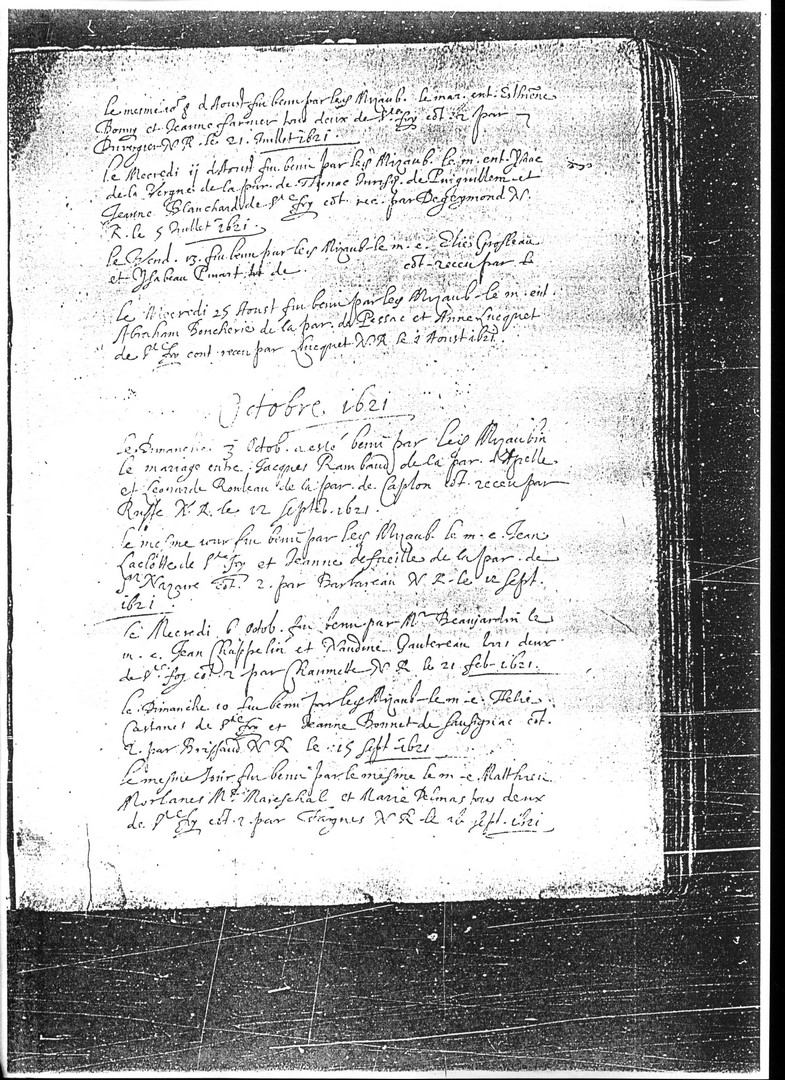 le mesme jor 8 d Aoust fut beni par leds Myaub. le mar. ent. Esthiene
Bonny et Jeanne farnier tous deux de Ste foy cot. 2 par
Duvergier N. R. le 21. Juillet 1621.
le Mecredi 11 d'Aoust fut beni par leds Myaub. le m. ent. Ysaac
de la Vergne de la par. de Thenac Jurisd. de Puiguillem et
Jeanne Blanchard de Ste foy cot. rec. par Degeymond N.
R. le 5 Juillet 1621.
le Vend. 13. fut beni par leds Myaub. le m. e. Elies Grosleau
et Ysabeau Pinart de cot. receu par
le Mecredi 25 Aoust fut beni par leds Myaub. le m. ent.
Abraham Boucherie de la par. de Pessac et Anne Lucquet
de Ste foy cont. receu par Lucquet N. R. le 1 Aoust 1621.
Octobre 1621
le Dimanche 3 Octob. a esté beni par leds Myaubin
le mariage entre Jacques Rambaud de la par. d'Apelle
et Leonarde Rouleau de la par. de Caplon cot. receu par
Russe N. R. le 12 septb. 1621.
le mesme jour fut beni par leds Myaub. le m. e. Jean
Laclotte de Ste foy et Jeanne de la par. de
St Nazaire cot. 2. par Barbareau N. R. le 12 Sept.
1621.
le Mecredi 6 Octob. fut beni par Mr Beaujardin le
m. e. Jean Chappelin et Naudine Gautereau tous deux
de Ste foy cot. 2 par Chaumette N. R. le 21 feb. 1621.
le Dimanche 10 fut beni par leds Myaub. le m. e. Helie
Castanet de Ste foy et Jeanne Bonnet de Saussignac cot.
2. par Brissaud N. R. le 15 Sept. 1621
le mesme Jour fut beni par le mesme le m. e. Matthieu
Morlanes Mt. Mareschal et Marie Delmas tous deux
de Ste foy cot. 2. par N R. le 16 sept. 1621